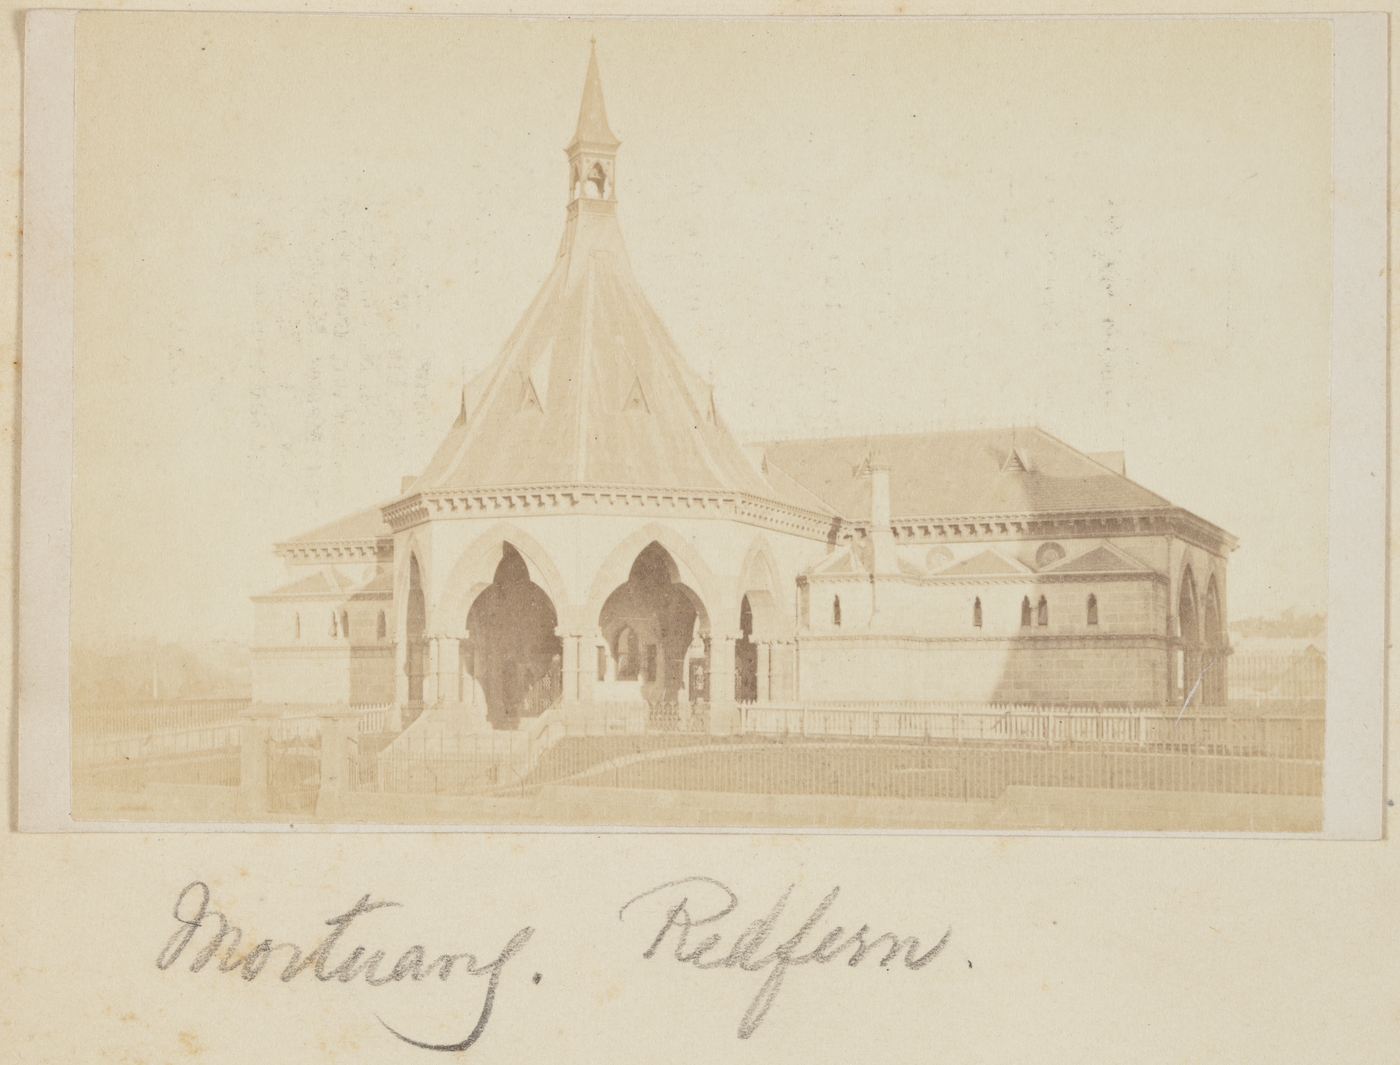 Mortuary. Redfern.